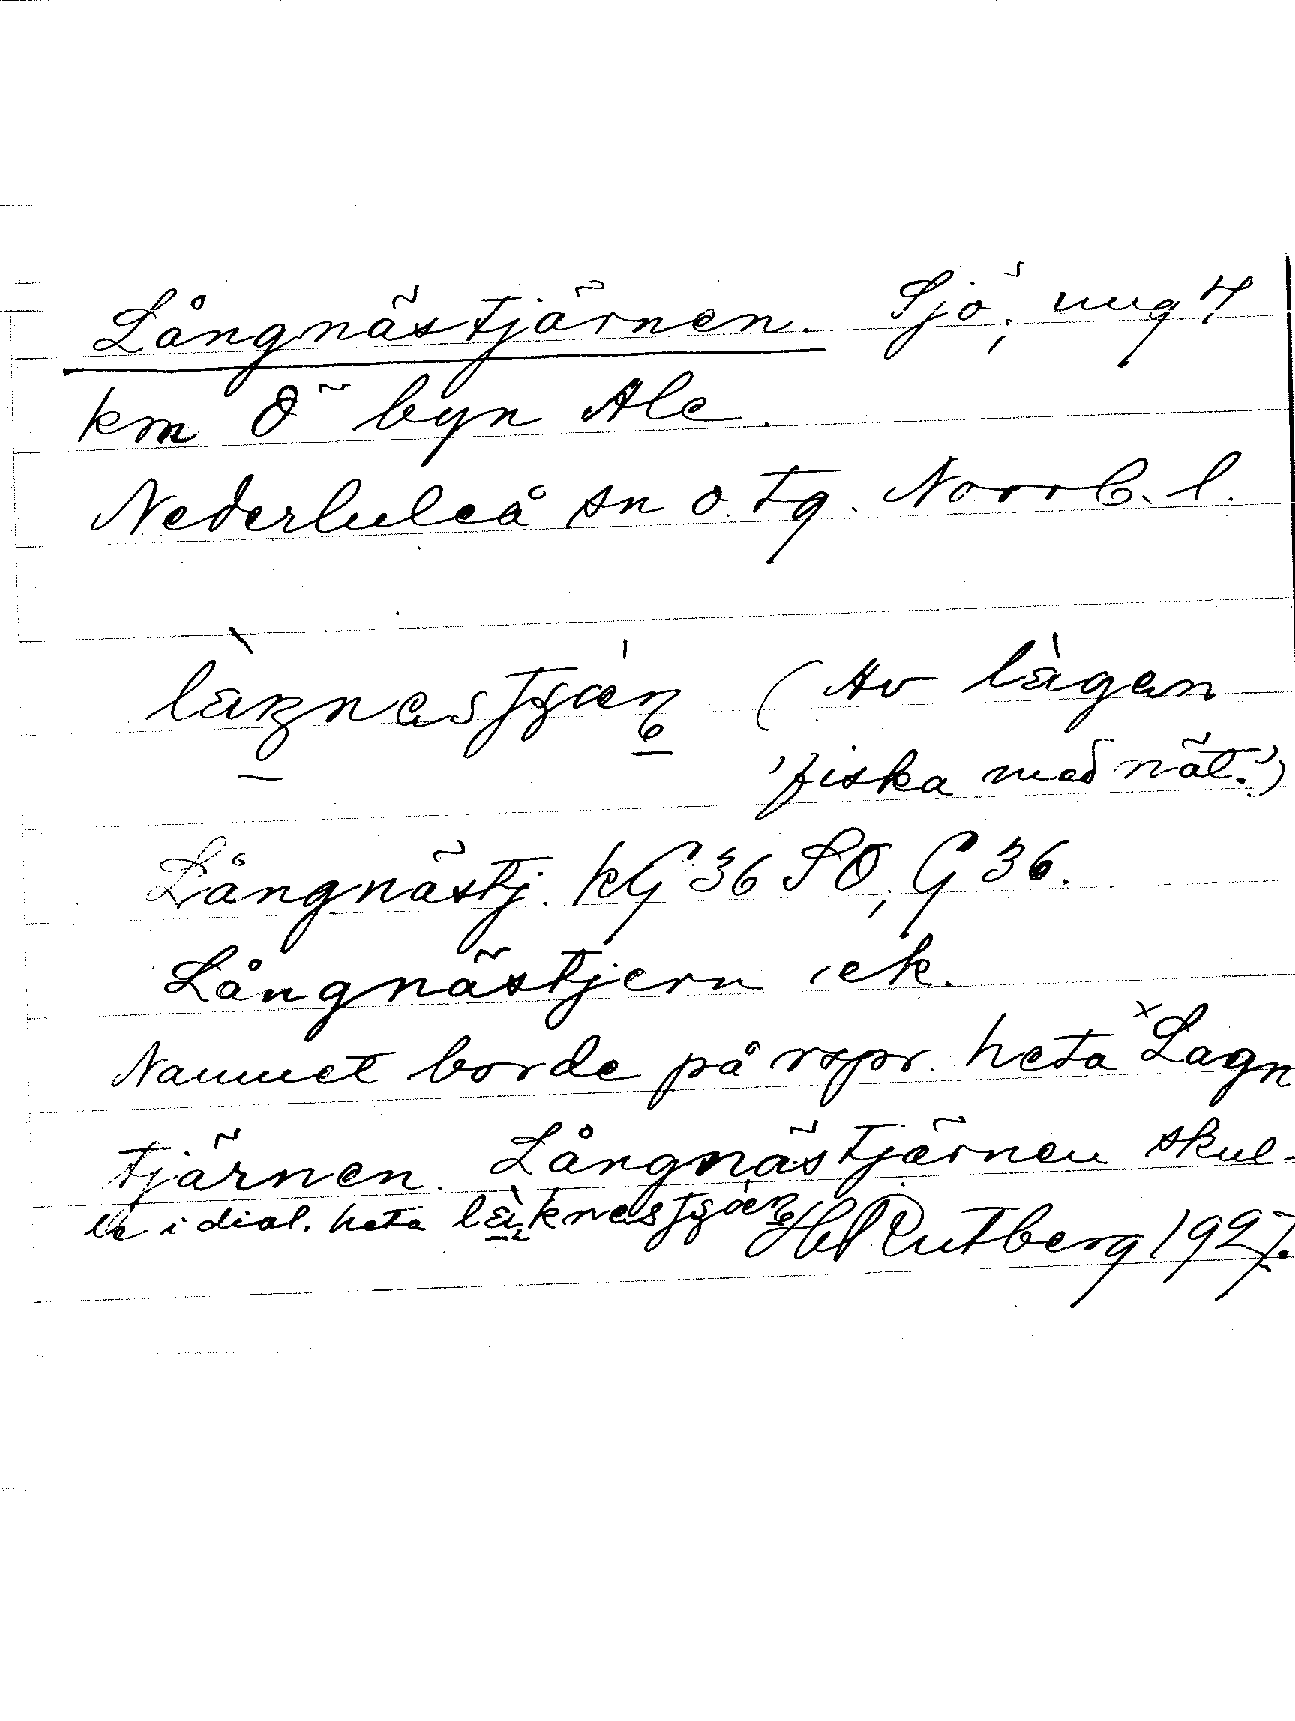 Långnästjärnen. Sjö, ung 4
km Ö byn Ale.
Nederluleå sn o. tg. Norrb. l.
(Av làgan
'fiska med nät.')
Långnästj. kG 36 SO, G 36.
Långnästjern ek.
Namnet borde på rspr. heta ˣLagn
tjärnen. Långnästjärnen skul-
le i dial. heta
H Rutberg 1927.